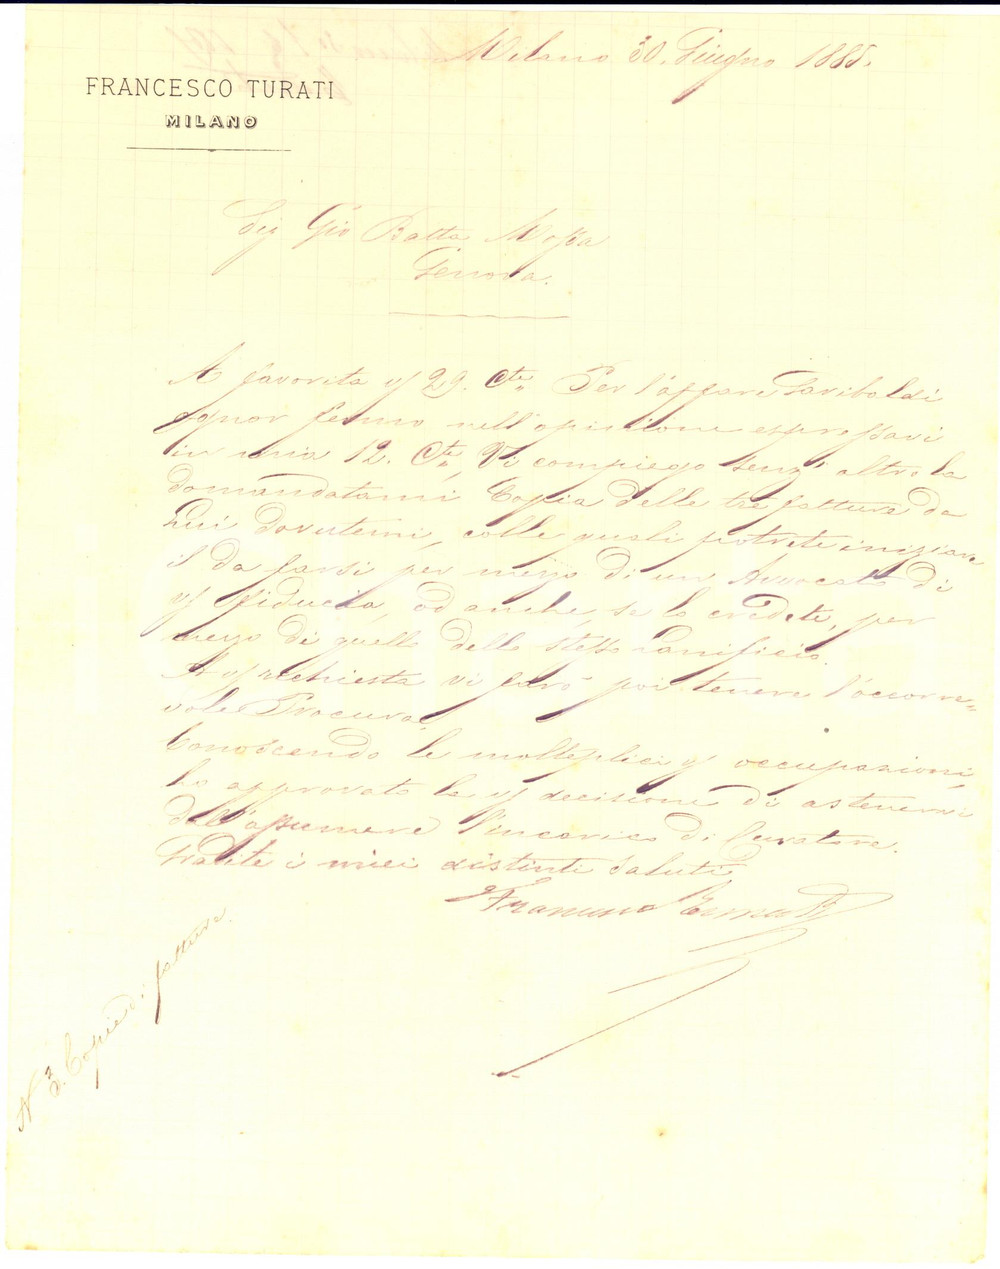 Milano 30. Giugno 1885.
FRANCESCO TURATI
MILANO
Sig Gio Batta Mossa
Genova.
A favorita vs 29. Cte. Per l'affare Garibaldi
ognor fermo nell'opinione espressavi
in mia 12. Cte, Vi compiego senz'altro la
domandatami Copia delle tre fatture da
Lui dovutemi, colle quali potrete iniziare
il da farsi per mezzo di un Avvocato di
vs fiducia, od anche, se lo credete, per
mezzo di quello dello stesso Lanificio.
A vs richiesta vi farò poi tenere l'occorre=
vole Procura.
Conoscendo le molteplici vs occupazioni,
ho approvato la vs decisione di astenervi
dall'assumere l'incarico di Curatore.
Gradite i miei distinti saluti
Francesco Turati
N° 3. Copie di fatture.